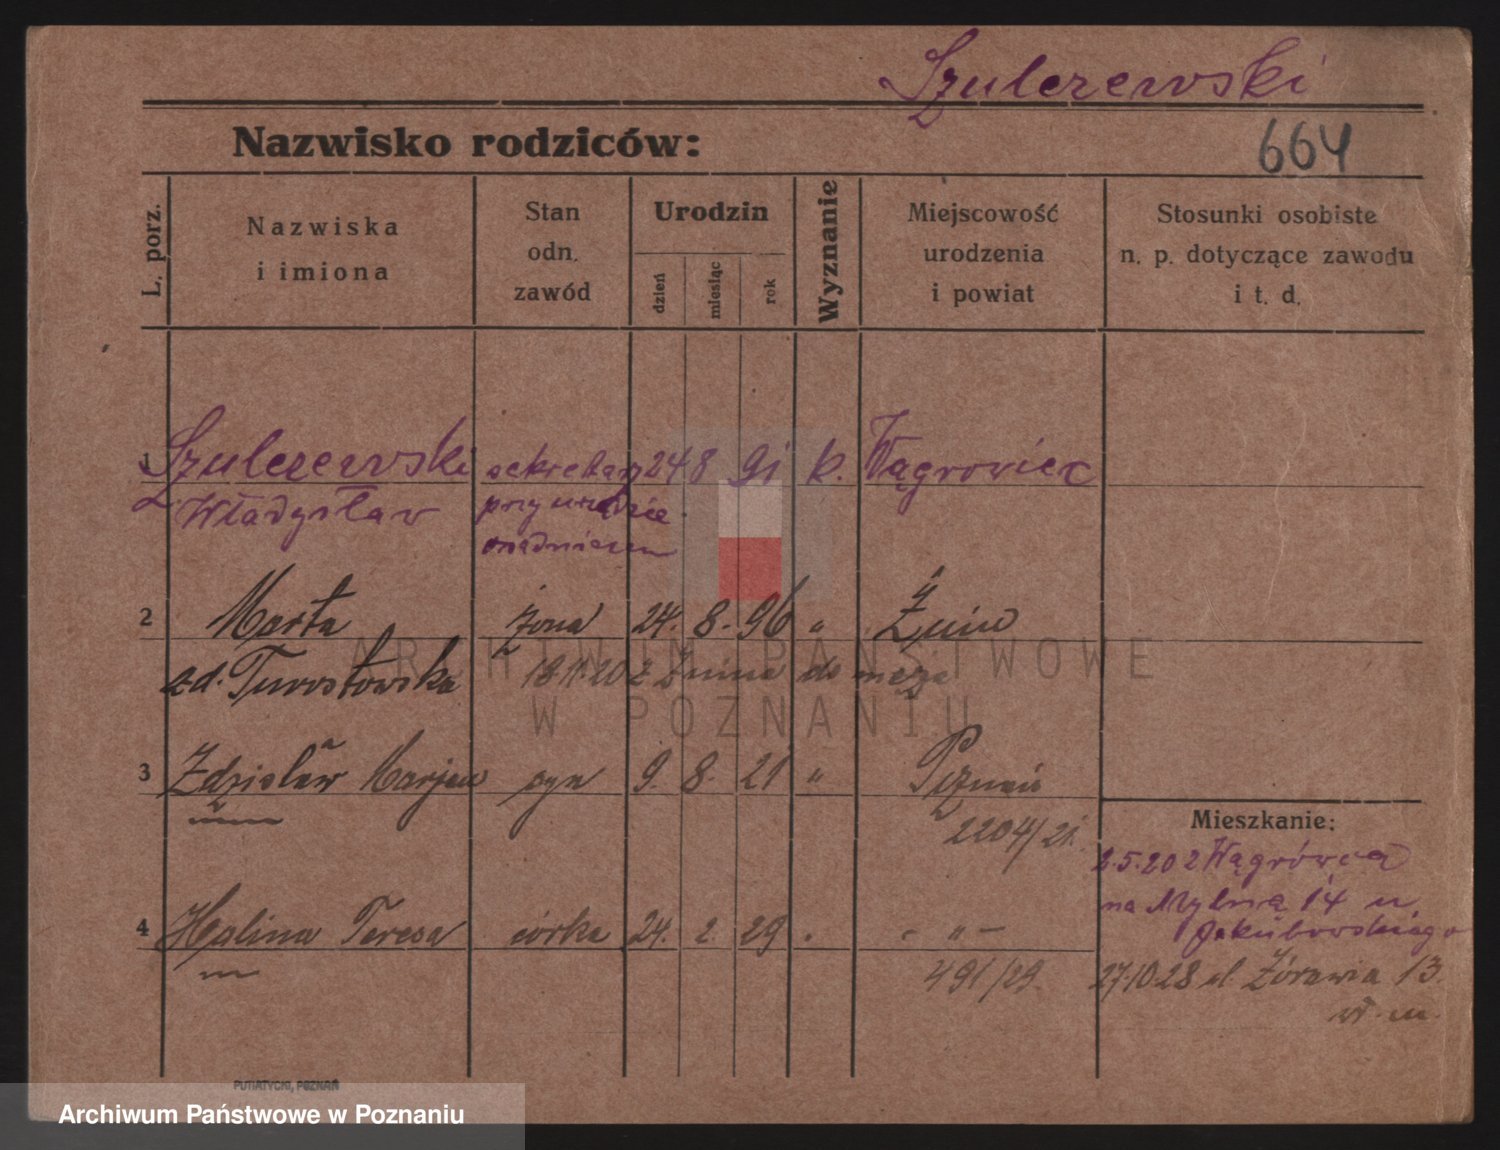 Szulczewski
Nazwisko rodziców:
664
L. porz.
Nazwiska
i imiona
Stan
odn.
zawód
Urodzin
dzień
miesiąc
rok
Wyznanie
Miejscowość
urodzenia
i powiat
Stosunki osobiste
n. p. dotyczące zawodu
i t. d.
1 Szulczewski sekretarz 24 8 91 k. Wągrowiec
Władysław przy urzędzie
2 Marta żona 24. 8. 96 " Żnin
zd. Turostowska 18.11.20 z Żnina do męża
3 Zdzisław Marjan syn 9. 8. 21 " Poznań
2204/21.
Mieszkanie:
2.5.20 z Wągrówca
na Mylną 14 u
Jakubowskiego
4 Halina Teresa córka 24. 2. 29 . - " -
491/29.
27.10.28 ul. Żórawia 13.
w. m.
ARCHIWUM PAŃSTWOWE
W POZNANIU
PUTIATYCKI, POZNAŃ
Archiwum Państwowe w Poznaniu